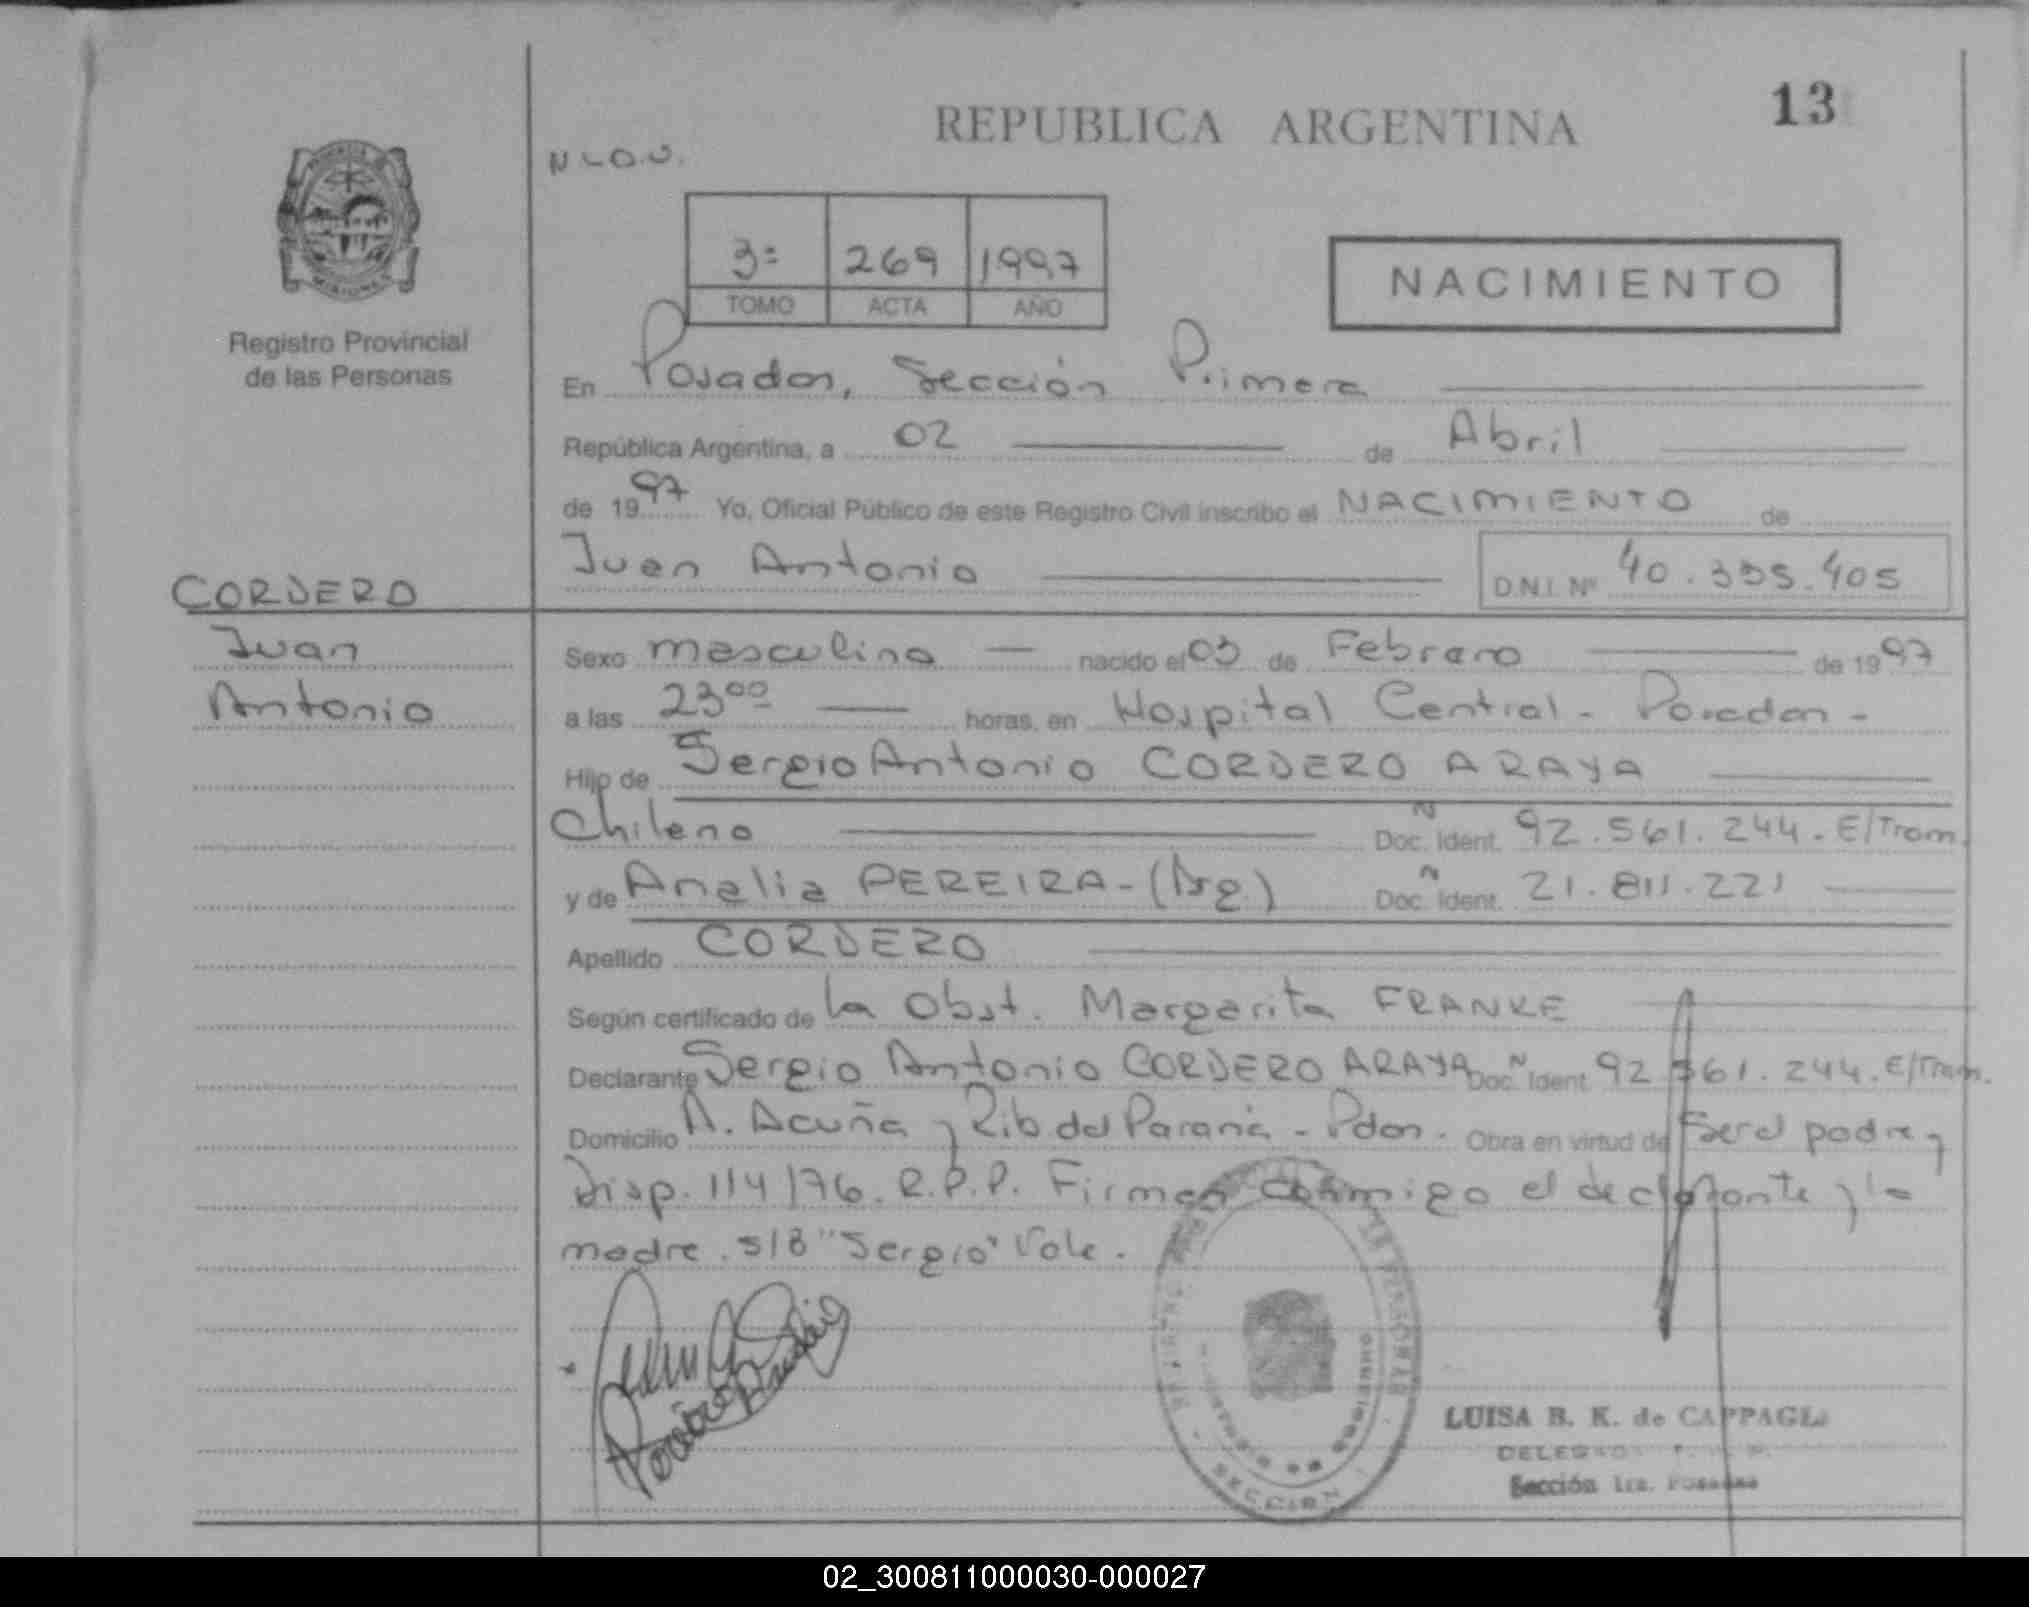 REPUBLICA ARGENTINA
13
N L O.U.
3ª 269 1997
TOMO ACTA AÑO
NACIMIENTO
MISIONES
Registro Provincial
de las Personas
En Posadas, Sección Primera
República Argentina, a 02 de Abril
de 1997 Yo, Oficial Público de este Registro Civil inscribo el NACIMIENTO de
Juan Antonio D.N.I. Nº 40.335.405
CORDERO
Juan
Antonio
Sexo masculino nacido el 03 de Febrero de 1997
a las 23⁰⁰ horas, en Hospital Central - Posadas -
Hijo de Sergio Antonio CORDERO ARAYA
Chileno Doc. Ident. 92.561.244. E/Tram.
y de Analia PEREIRA - (Arg.) Doc. Ident. 21.811.221
Apellido CORDERO
Según certificado de la Obst. Margarita FRANKE
Declarante Sergio Antonio CORDERO ARAYA Doc. Ident. 92.561.244. E/Tram.
Domicilio A. Acuña y Rib. del Paraná - Pdas. Obra en virtud de Ser el padre y
Disp. 114/76. R.P.P. Firman conmigo el declarante y la
madre. S/B "Sergio" Vale.
SECCION
LUISA B. K. de CAPPAGLI
Sección 1ra. Posadas
02_300811000030-000027